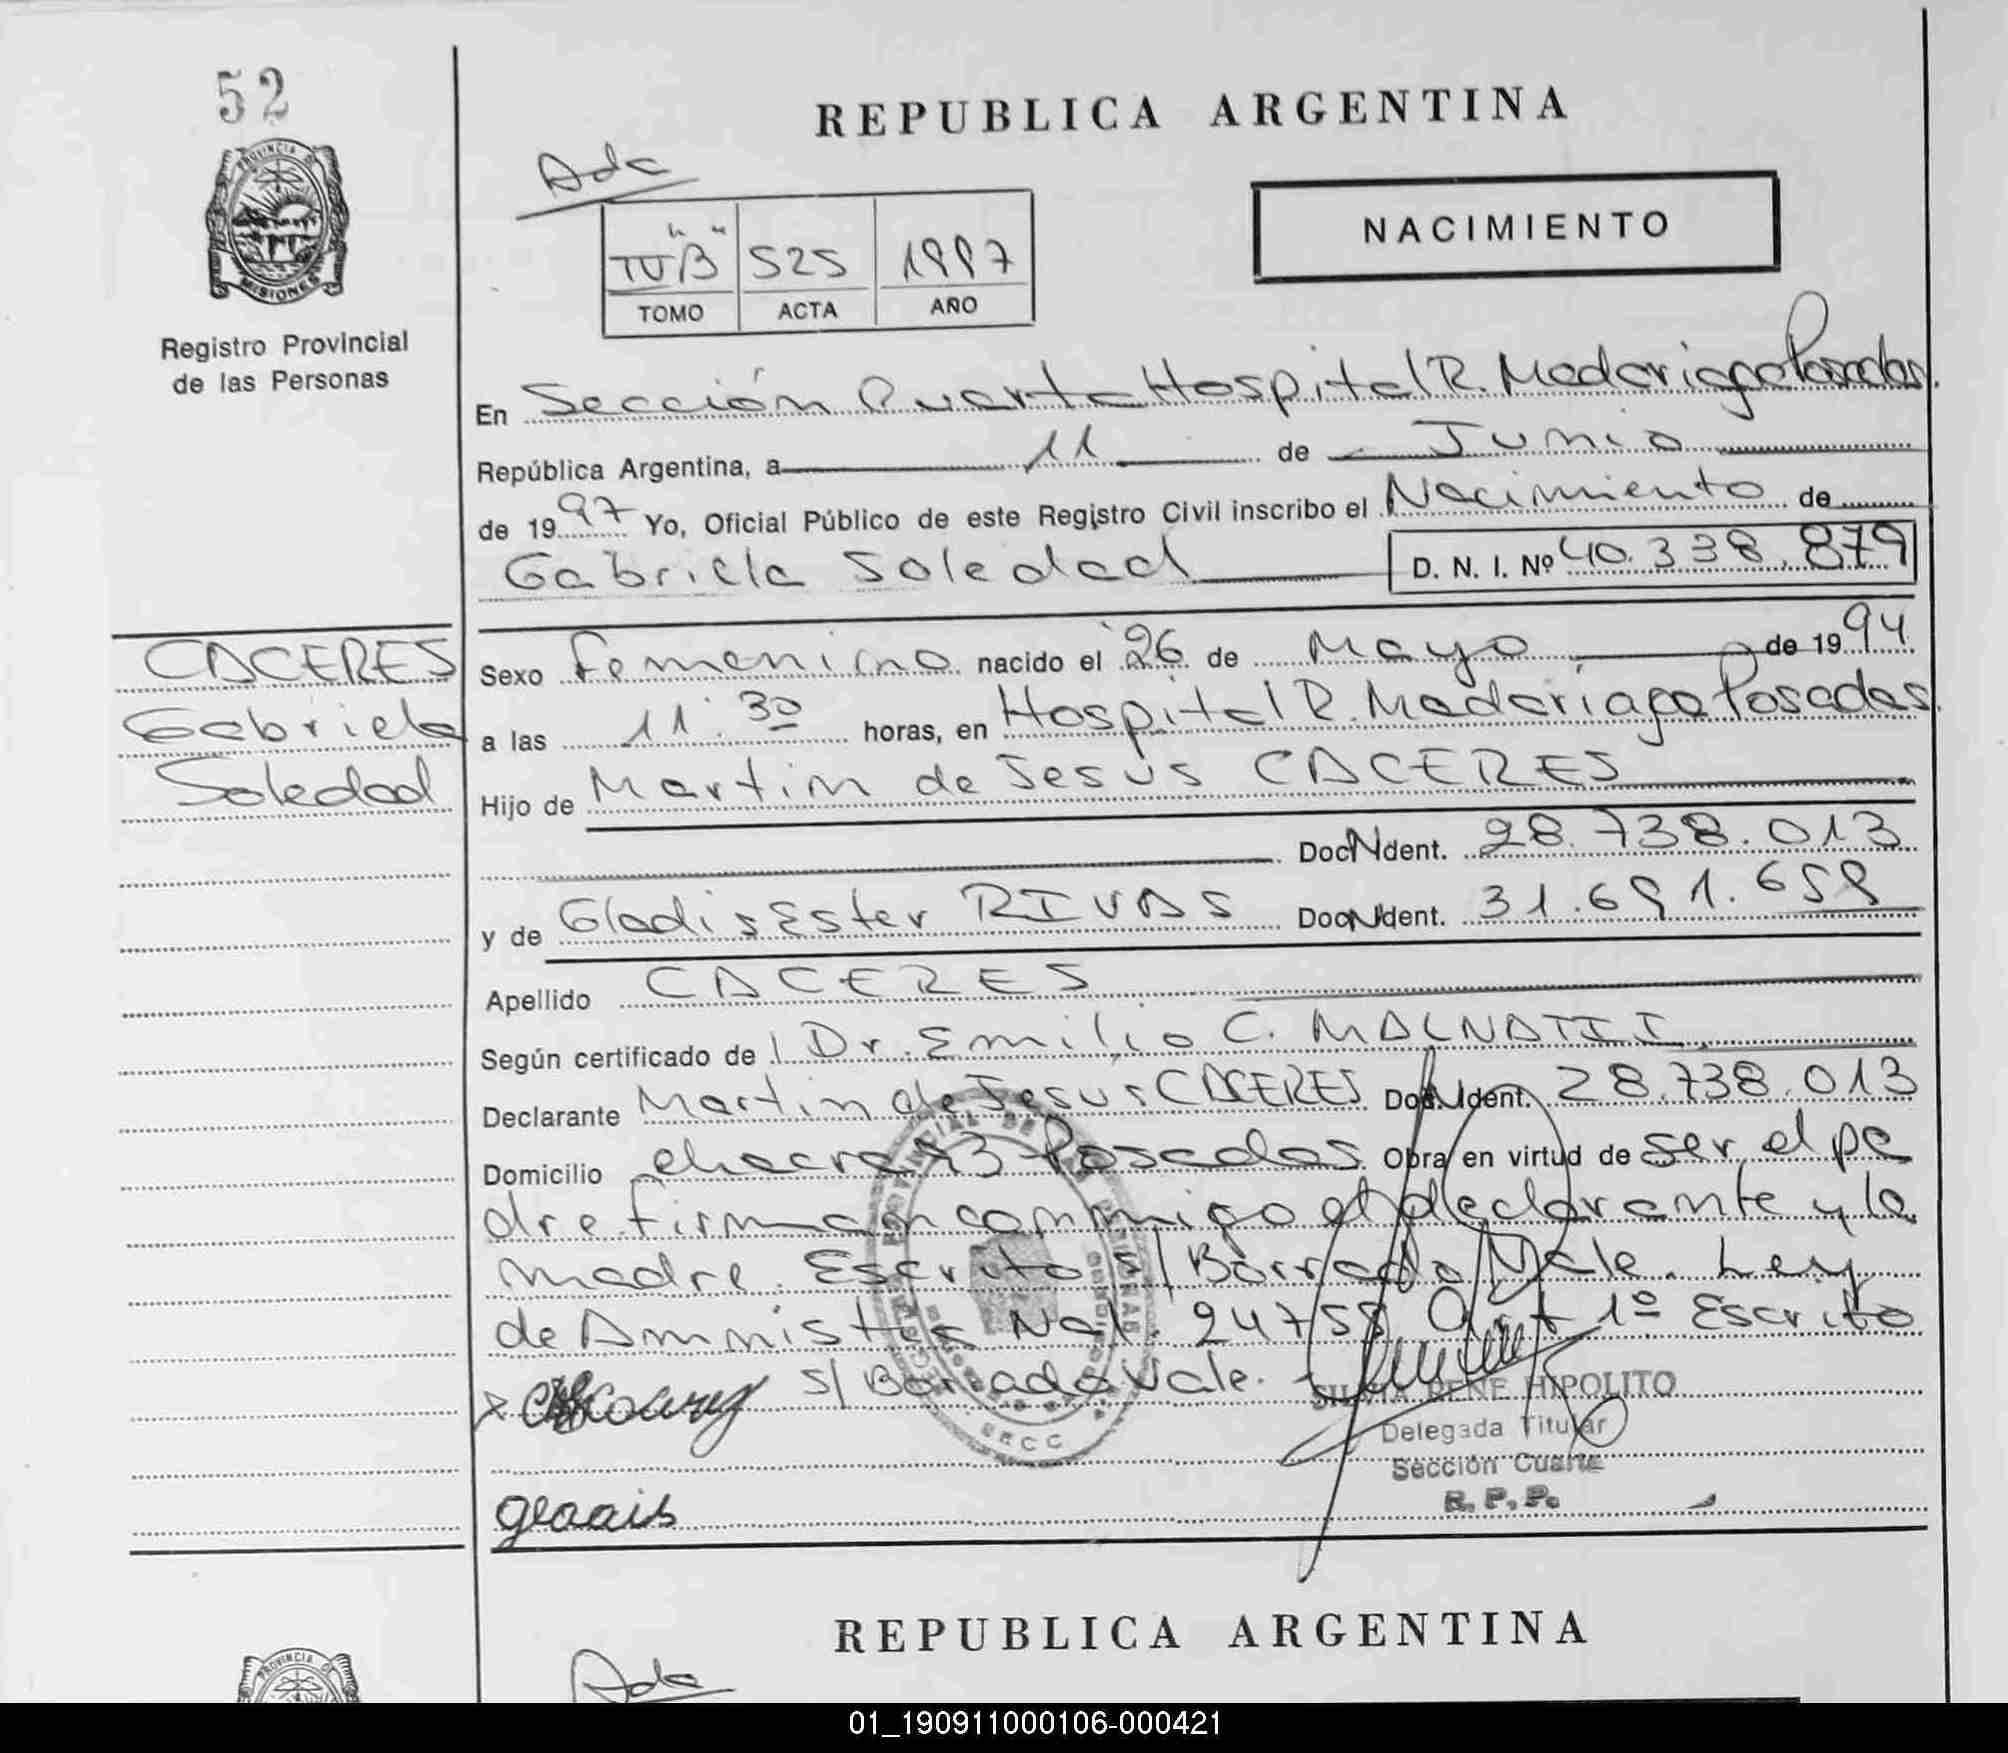 52
PROVINCIA DE
MISIONES
Registro Provincial
de las Personas
REPUBLICA ARGENTINA
Ada
NACIMIENTO
IV "B" 525 1997
TOMO ACTA AÑO
En Sección Cuarta Hospital R. Madariaga Posadas.
República Argentina, a 11 de Junio
de 1997 Yo, Oficial Público de este Registro Civil inscribo el Nacimiento de
Gabriela Soledad D. N. I. Nº 40.338.879
CACERES
Gabriela
Soledad
Sexo Femenino nacido el 26 de Mayo de 1994
a las 11:30 horas, en Hospital R. Madariaga Posadas.
Hijo de Martin de Jesús CACERES
Doc N Ident. 28.738.013
y de Gladis Ester RIVAS Doc N Ident. 31.691.659
Apellido CACERES
Según certificado de Dr. Emilio C. MALNATTI
Declarante Martin de Jesus CACERES Doc. N Ident. 28.738.013
Domicilio chacra 43 Posadas Obra en virtud de ser el pa
dre firman conmigo el declarante y la
madre. Escrito s/ Borrado Vale. Ley
de Amnistia Nal. 24755 Art 1º Escrito
s/ Borrado Vale.
SILVIA RENE HIPOLITO
Delegada Titular
Sección Cuarta
R. P. P.
gladis
REPUBLICA ARGENTINA
PROVINCIA DE
Ada
01_190911000106-000421